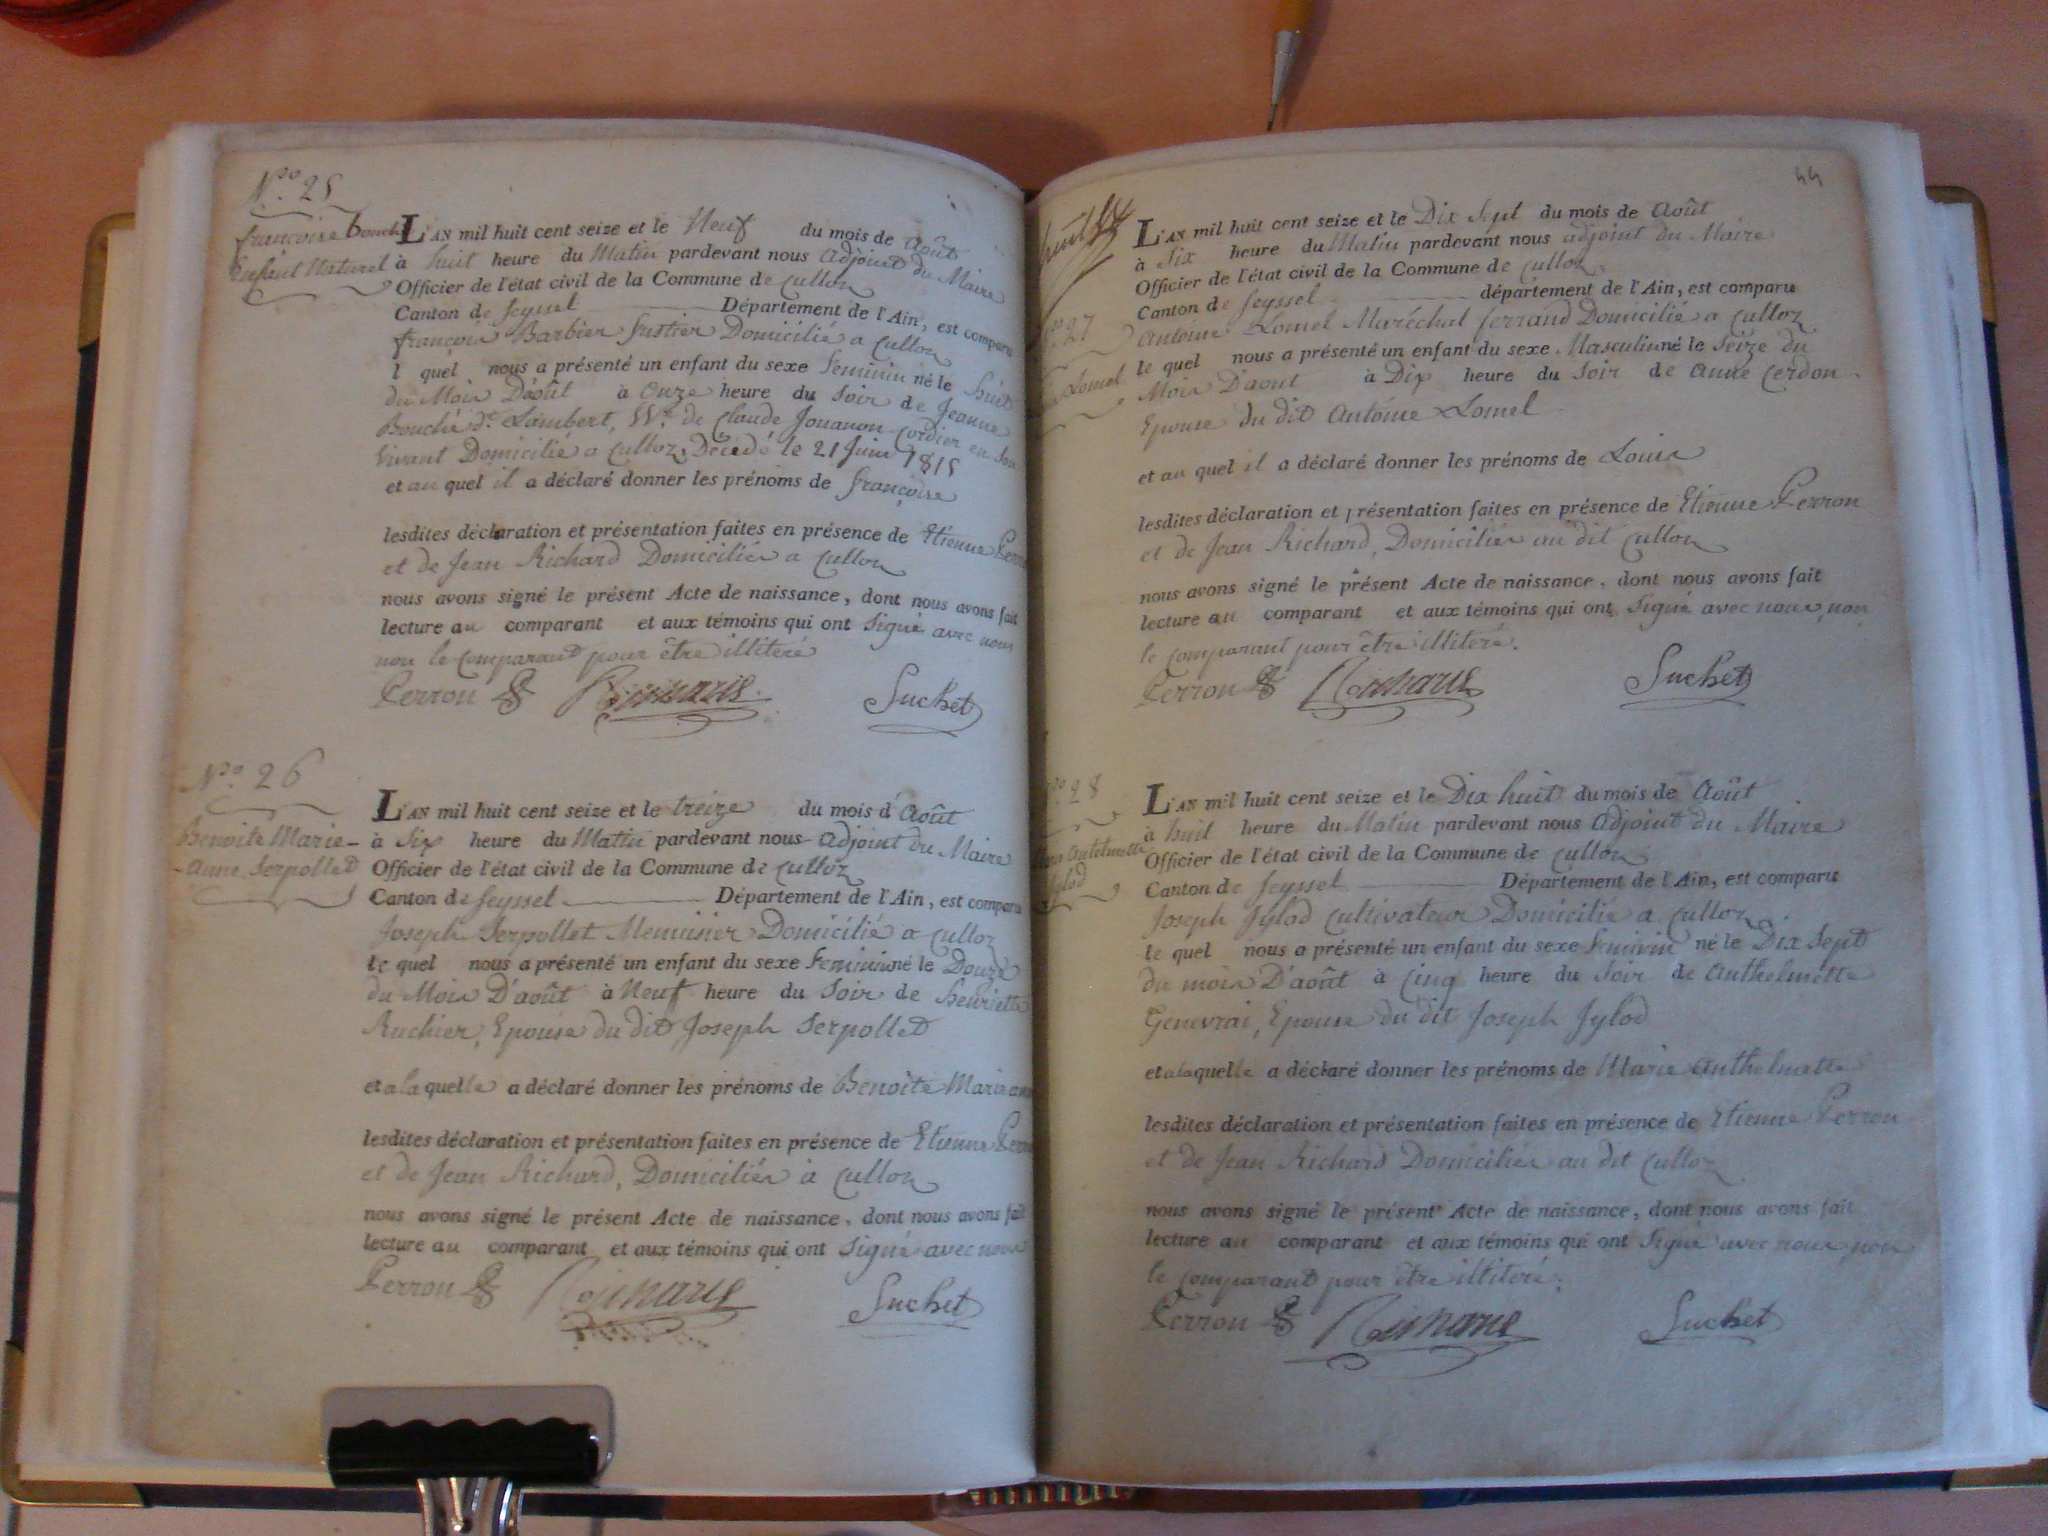 N.º 25
françoise Bouché
Enfant Naturel
L'AN mil huit cent seize et le Neuf du mois de Août
à huit heure du Matin pardevant nous Adjoint du Maire
Officier de l'état civil de la Commune de Culloz
Canton de Seyssel Département de l'Ain, est comparu
françois Barbier Fustier Domicilié a Culloz
l quel nous a présenté un enfant du sexe feminin né le huit
du Mois D'août à Onze heure du Soir de Jeanne
Bouché dᵉ Lambert, Vᵉ de Claude Jouanon Cordier en Son
Vivant Domicilié a Culloz, Décedé le 21 Juin 1815
et au quel il a déclaré donner les prénoms de françoise
lesdites déclaration et présentation faites en présence de Etienne Perron
et de Jean Richard Domiciliés a Culloz
nous avons signé le présent Acte de naissance, dont nous avons fait
lecture au comparant et aux témoins qui ont Signé avec nous
non le Comparant pour être illiteré
Perron Suchet
N.º 26
Benoite Marie-
-anne Serpollet
L'AN mil huit cent seize et le treize du mois d'Août
à Six heure du Matin pardevant nous Adjoint du Maire
Officier de l'état civil de la Commune de Culloz
Canton de Seyssel Département de l'Ain, est comparu
Joseph Serpollet Menuisier Domicilié a Culloz
le quel nous a présenté un enfant du sexe feminin né le Douze
du Mois D'août à Neuf heure du Soir de henriette
Ruchier, Epouse du dit Joseph Serpollet
et a la quelle a déclaré donner les prénoms de Benoite Marie anne
lesdites déclaration et présentation faites en présence de Etienne Perron
et de Jean Richard, Domiciliés à Culloz
nous avons signé le présent Acte de naissance, dont nous avons fait
lecture au comparant et aux témoins qui ont Signé avec nous
Perron Suchet
44
huit
Nº 27
Lomel
L'AN mil huit cent seize et le Dix Sept du mois de Août
à Six heure du Matin pardevant nous adjoint du Maire
Officier de l'état civil de la Commune de Culloz
Canton de Seyssel département de l'Ain, est comparu
Antoine Lomel Maréchal ferrand Domicilié a Culloz
le quel nous a présenté un enfant du sexe Masculin né le Seize du
Mois D'aout à Dix heure du Soir de Anne Cerdon
Epouse du dit Antoine Lomel
et au quel il a déclaré donner les prénoms de Louis
lesdites déclaration et présentation faites en présence de Etienne Perron
et de Jean Richard, Domiciliés au dit Culloz
nous avons signé le présent Acte de naissance, dont nous avons fait
lecture au comparant et aux témoins qui ont Signé avec nous, non
le Comparant pour être illiteré.
Perron Suchet
Nº 28
Marie Antelmette
Jylod
L'AN mil huit cent seize et le Dix huit du mois de Août
à huit heure du Matin pardevant nous Adjoint du Maire
Officier de l'état civil de la Commune de Culloz
Canton de Seyssel Département de l'Ain, est comparu
Joseph Jylod Cultivateur Domicilié a Culloz
le quel nous a présenté un enfant du sexe feminin né le Dix Sept
du mois D'août à Cinq heure du Soir de Anthelmette
Genevrai, Epouse du dit Joseph Jylod
et a la quelle a déclaré donner les prénoms de Marie Anthelmette
lesdites déclaration et présentation faites en présence de Etienne Perron
et de Jean Richard Domiciliés au dit Culloz
nous avons signé le présent Acte de naissance, dont nous avons fait
lecture au comparant et aux témoins qui ont Signé avec nous, non
le Comparant pour être illiteré.
Perron Suchet